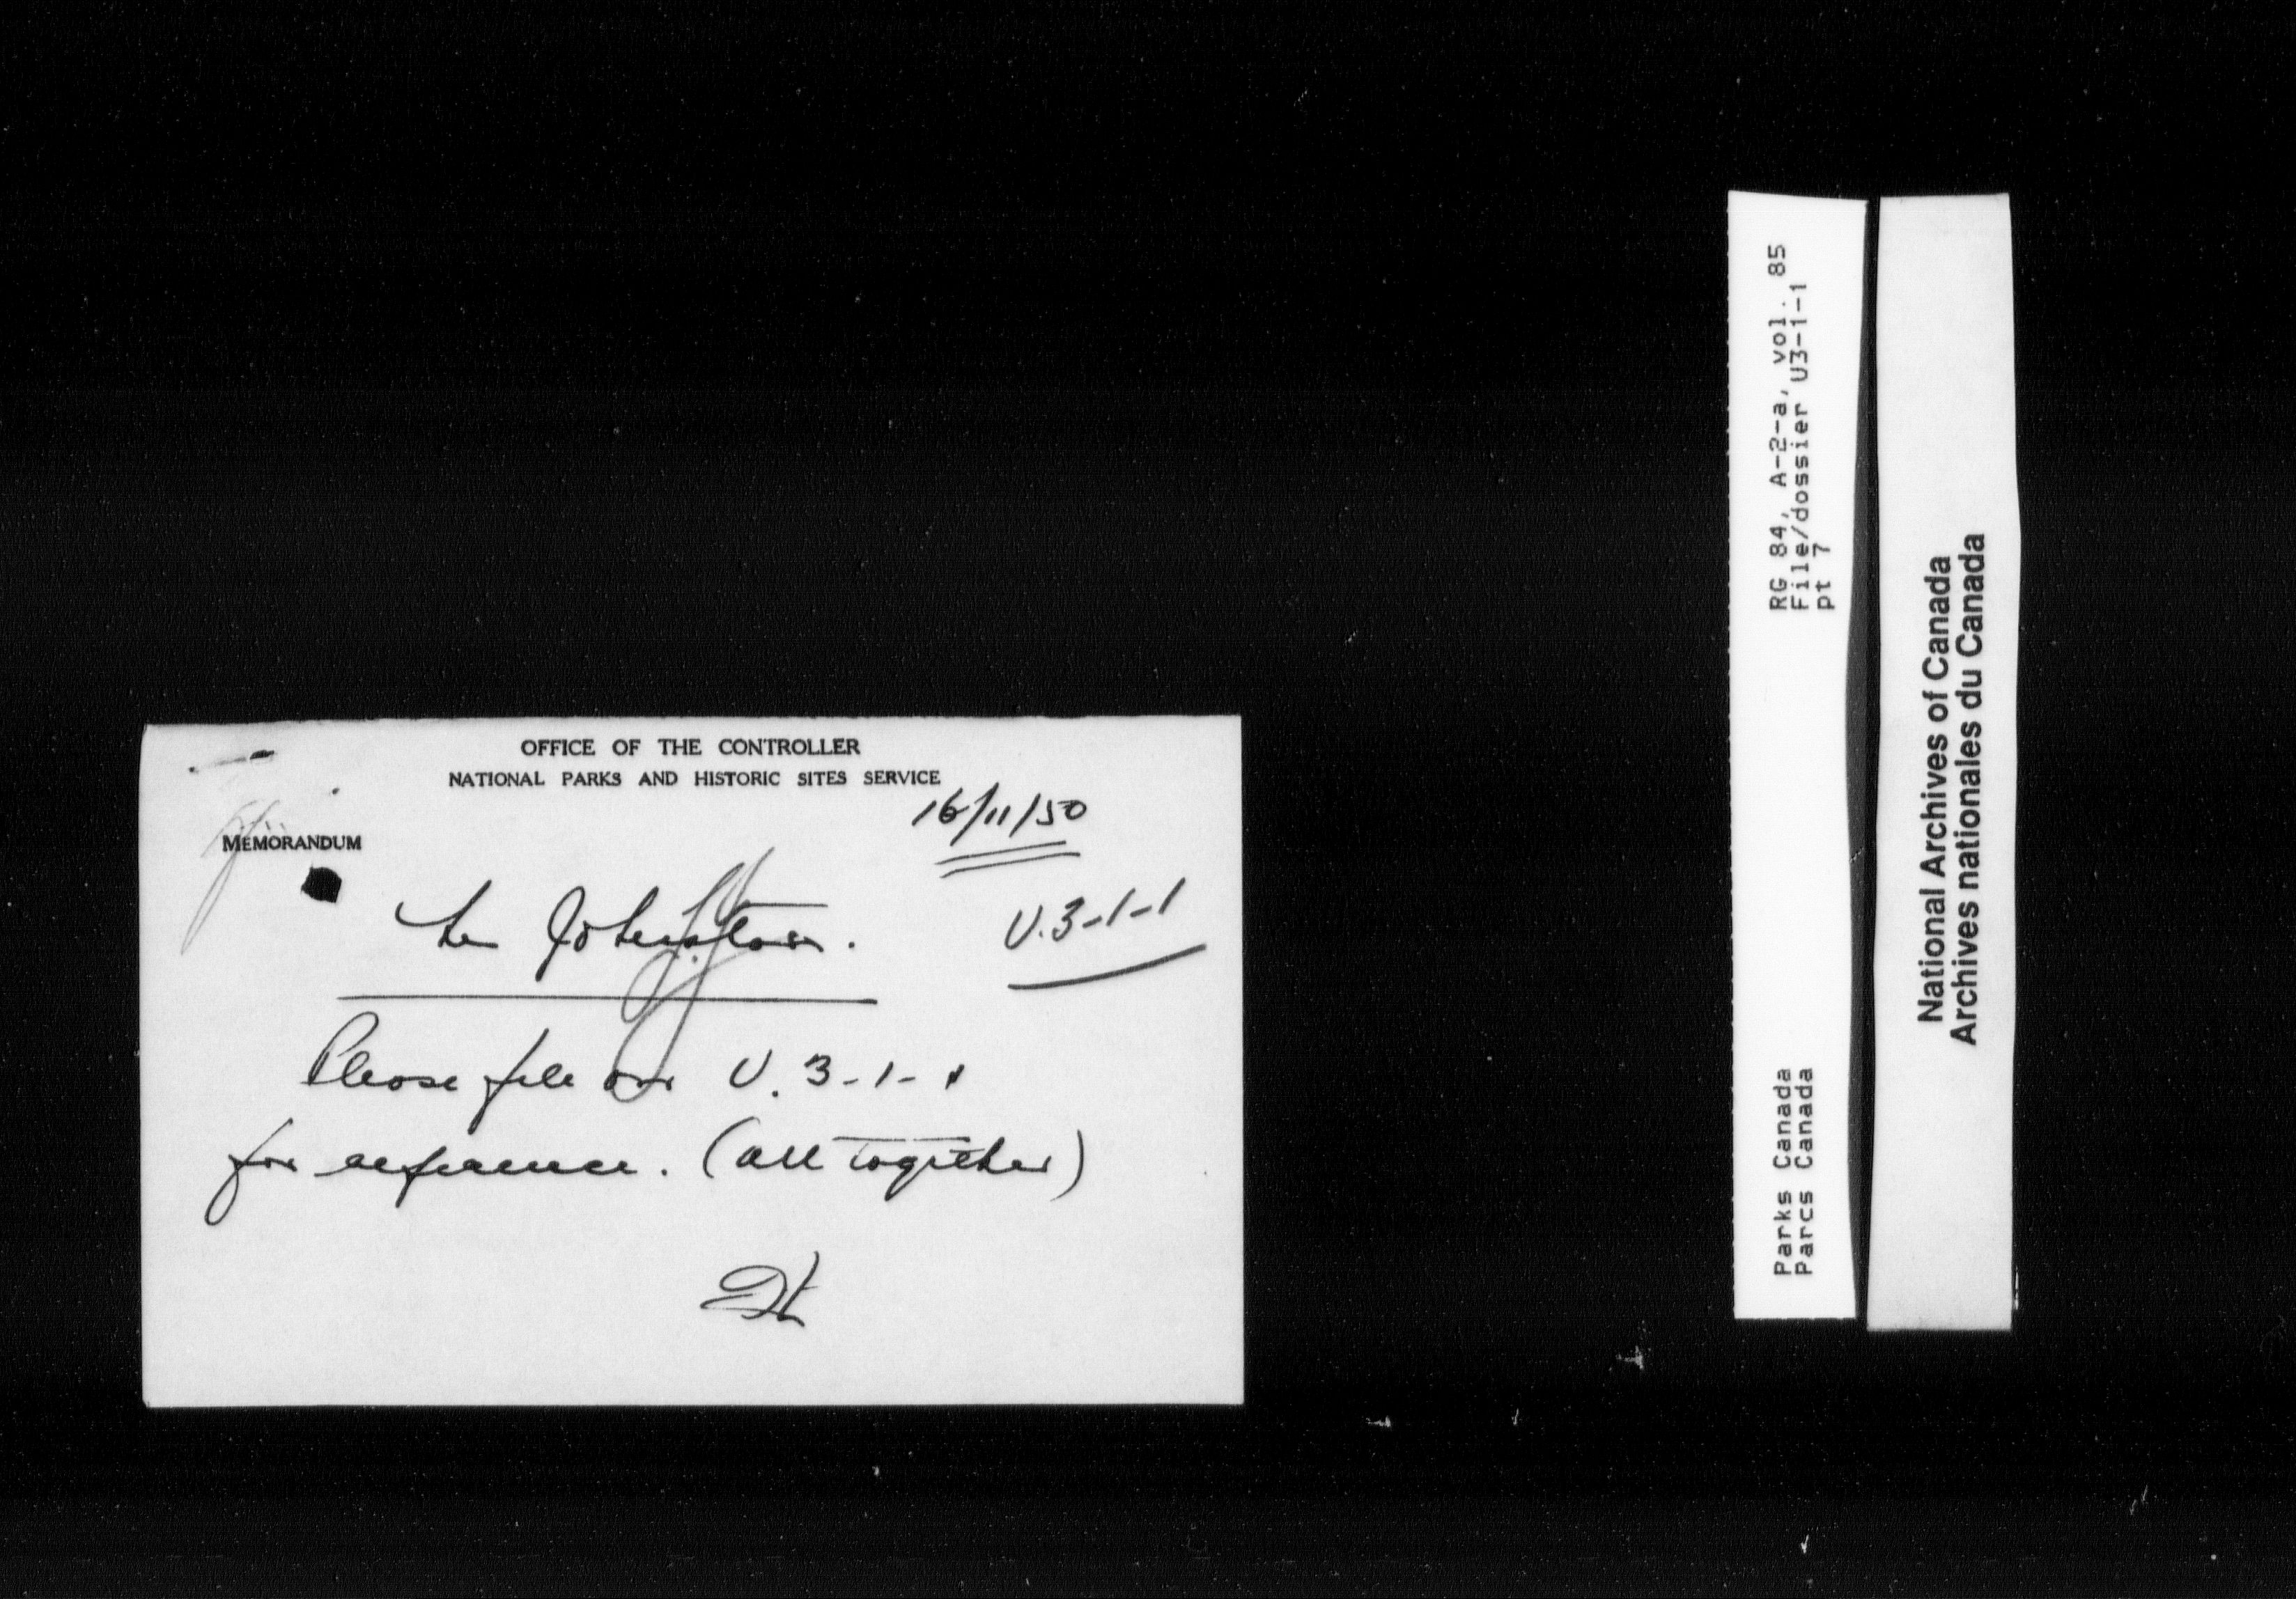 OFFICE OF THE CONTROLLER
NATIONAL PARKS AND HISTORIC SITES SERVICE
16/11/50
MEMORANDUM
Johnston.
U.3-1-1
Please file on U.3-1-1
for reference. (all together)
RG 84, A-2-a, vol. 85
File/dossier U3-1-1
pt 7
Parks Canada
Parcs Canada
National Archives of Canada
Archives nationales du Canada